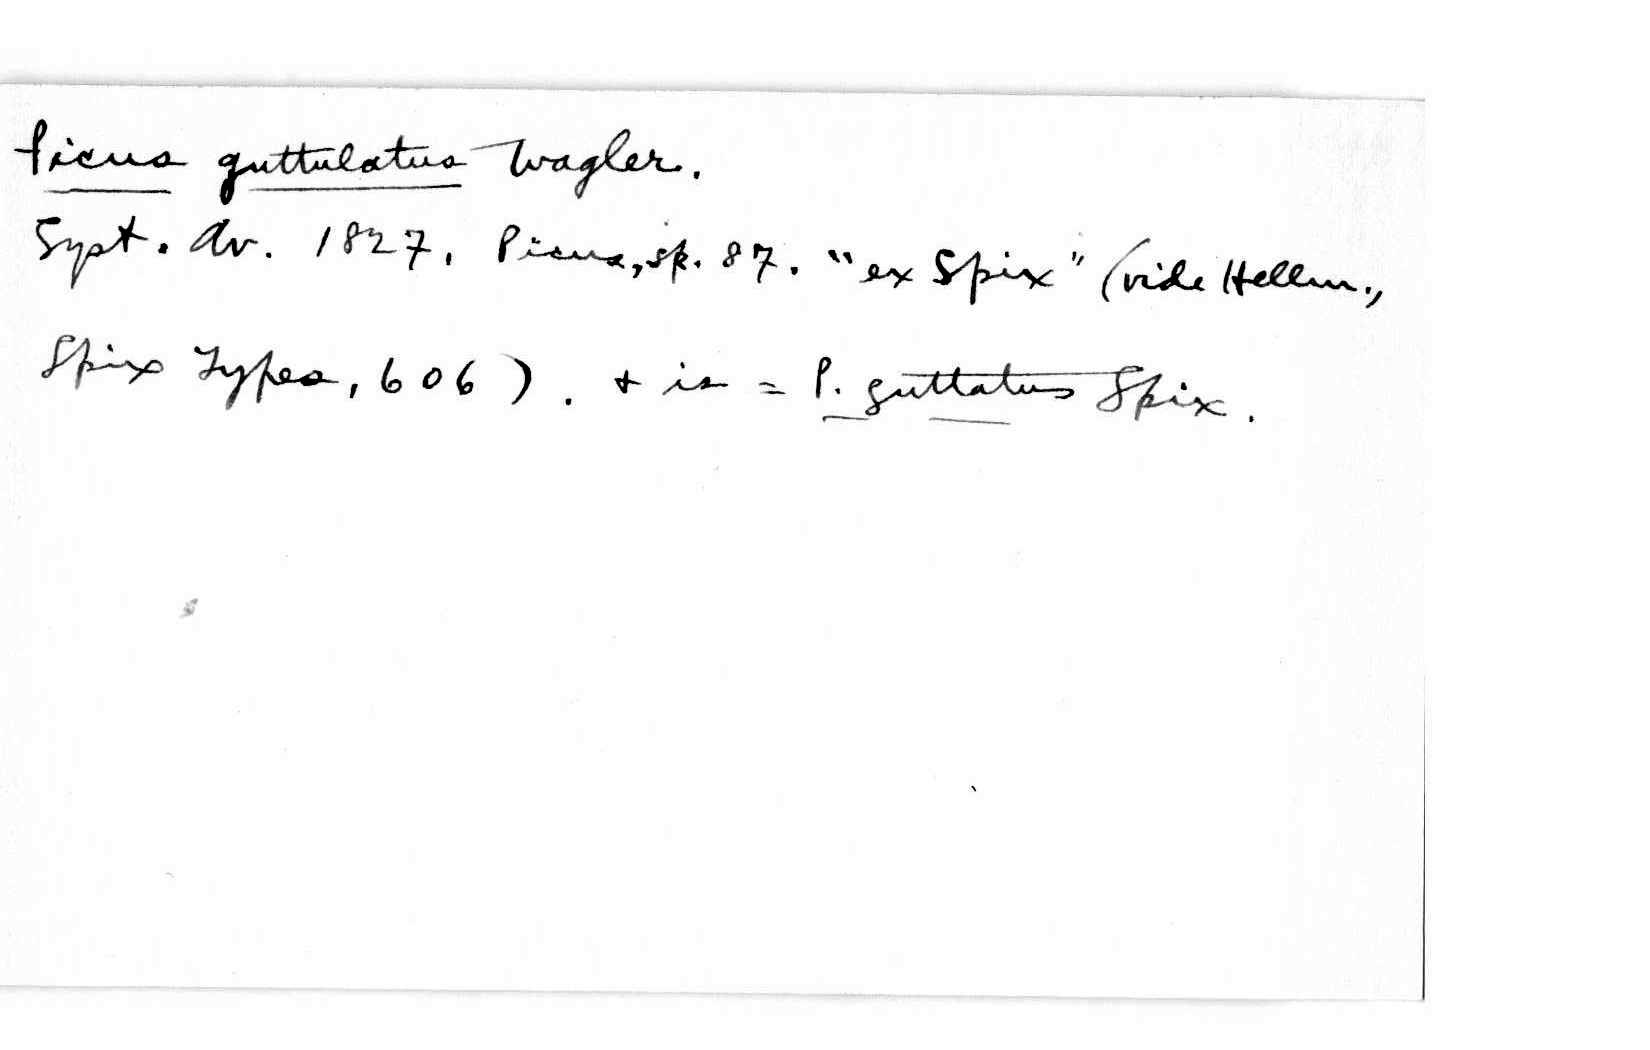 Picus guttulatus Wagler.
Syst. Av. 1827, Picus, sp. 87. "ex Spix" (vide Hellm.,
Spix Types, 606). + is = P. guttatus Spix.